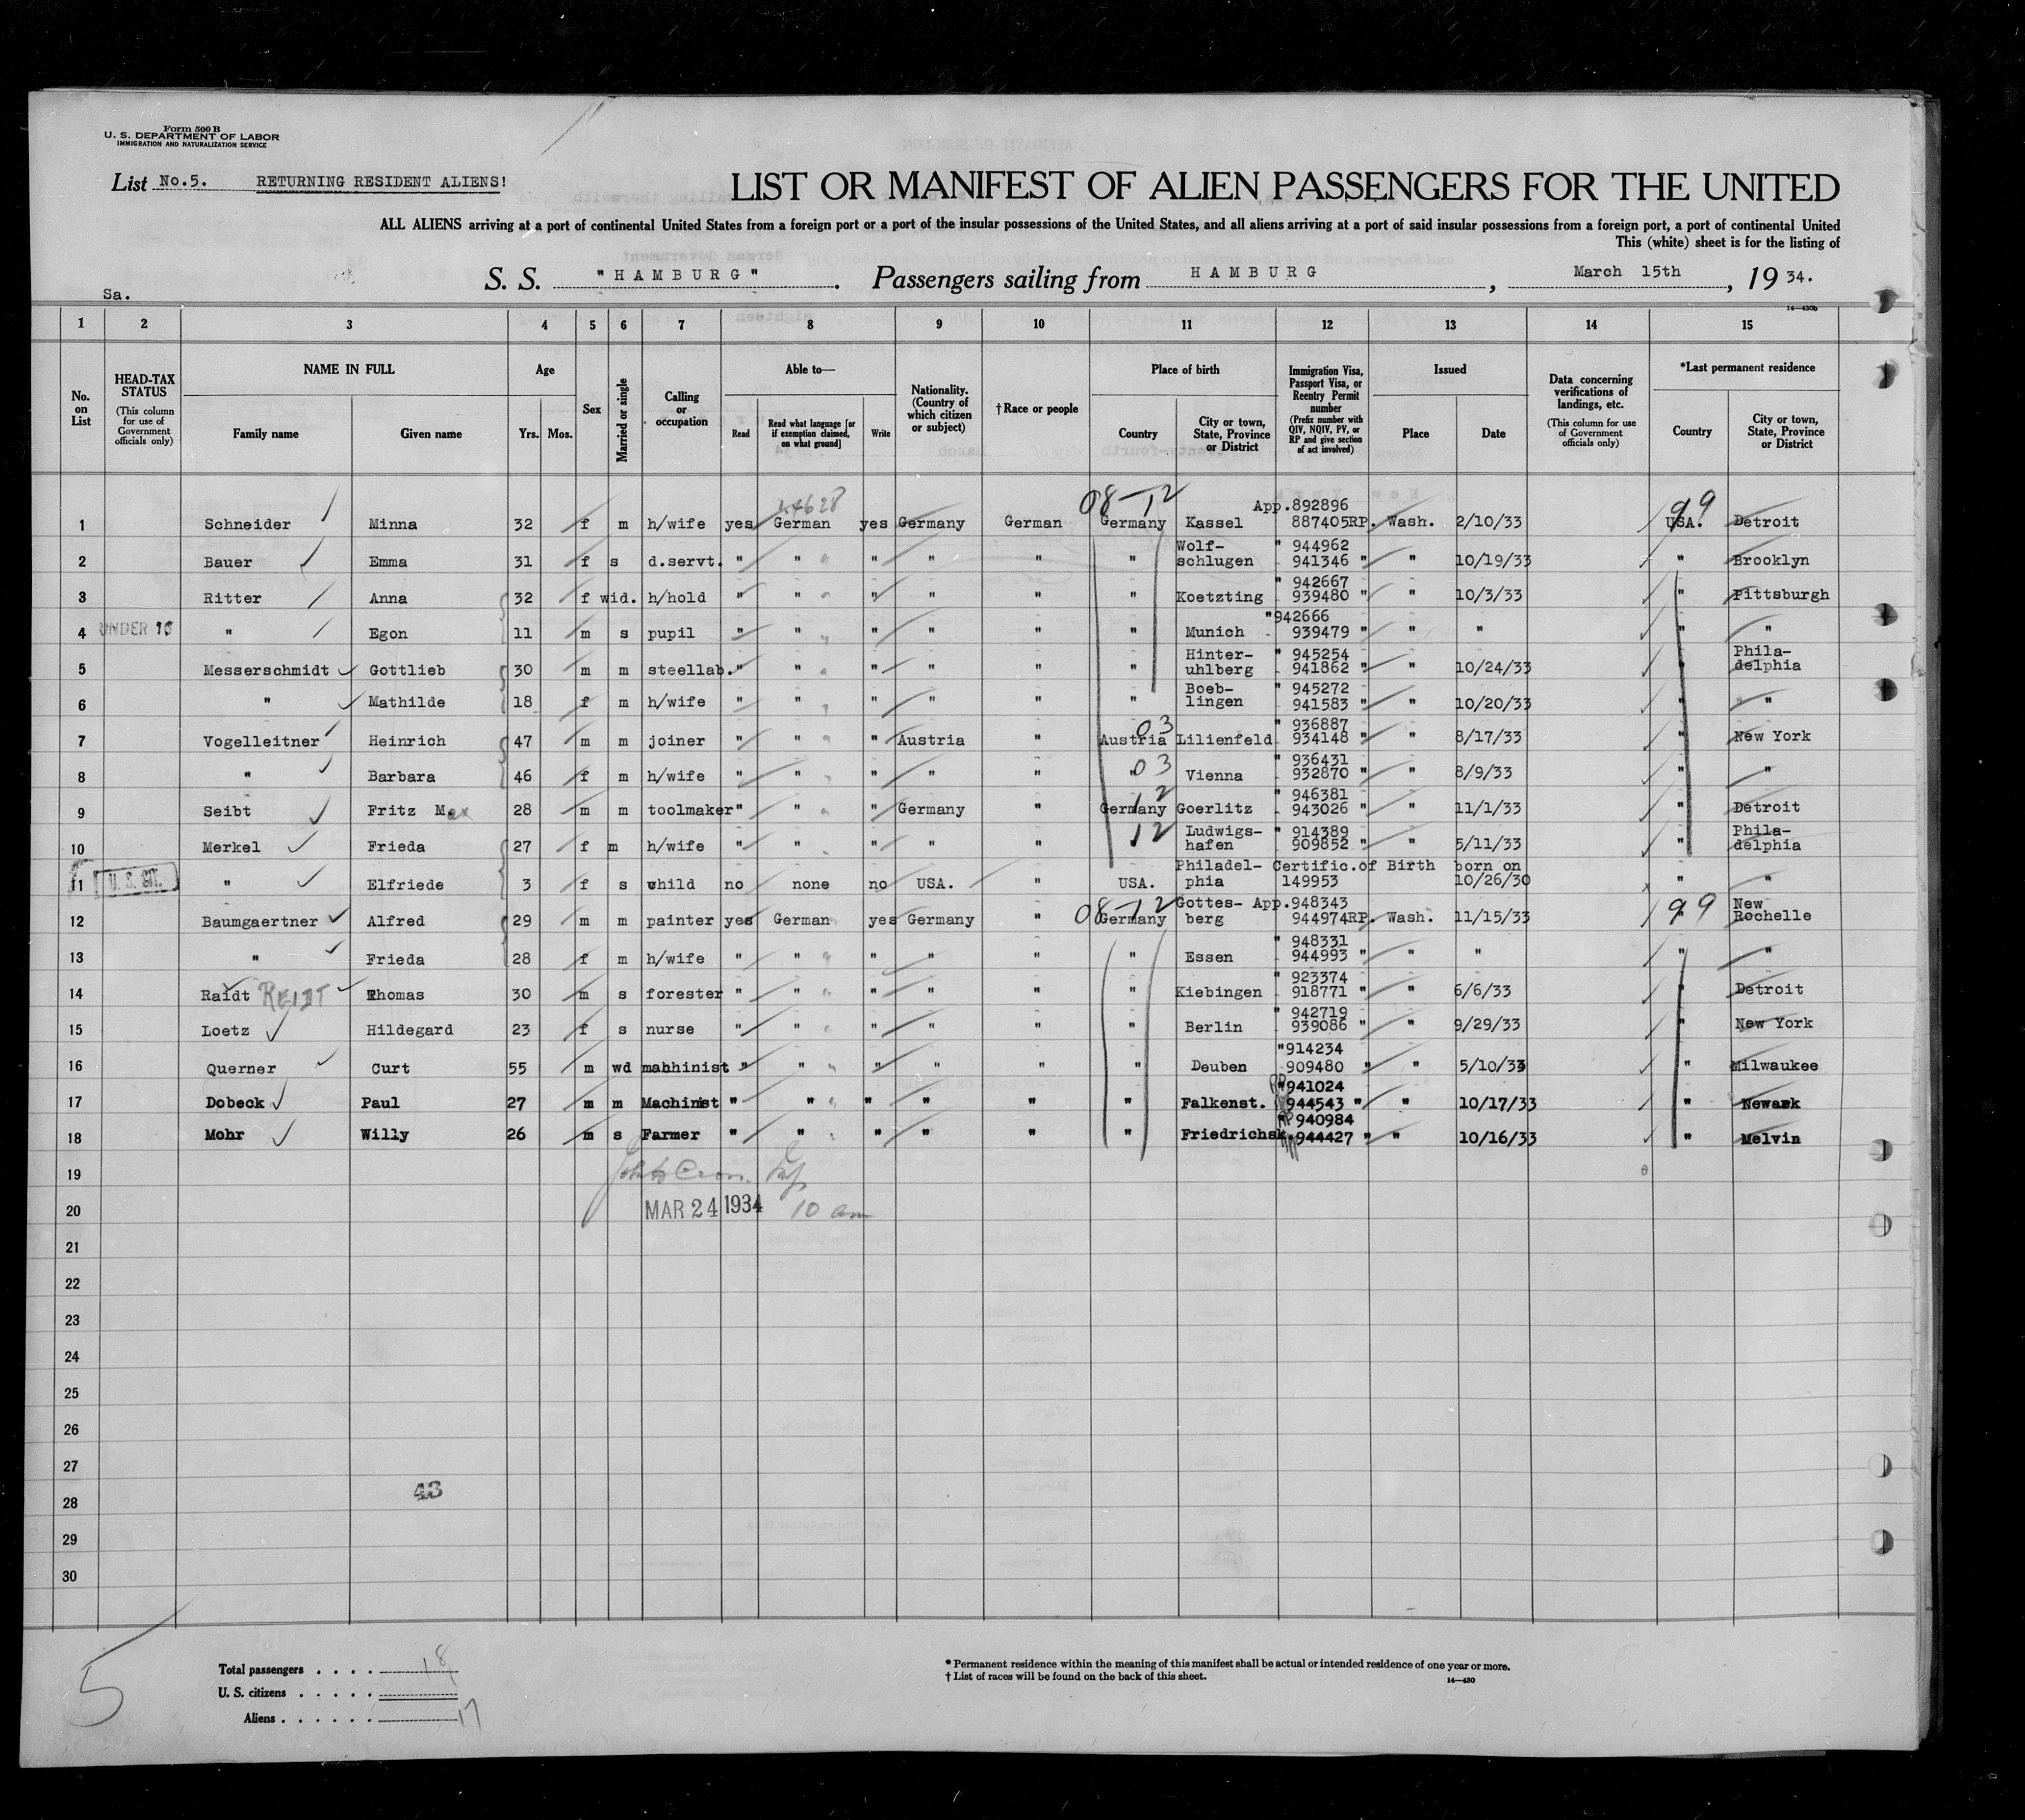 Form 500 B
U. S. DEPARTMENT OF LABOR
IMMIGRATION AND NATURALIZATION SERVICE
List No.5. RETURNING RESIDENT ALIENS!
LIST OR MANIFEST OF ALIEN PASSENGERS FOR THE UNITED
ALL ALIENS arriving at a port of continental United States from a foreign port or a port of the insular possessions of the United States, and all aliens arriving at a port of said insular possessions from a foreign port, a port of continental United
This (white) sheet is for the listing of
S. S. "HAMBURG". Passengers sailing from HAMBURG, March 15th, 19 34.
Sa.
14—430b
1 2 3 4 5 6 7 8 9 10 11 12 13 14 15
No. on List
HEAD-TAX STATUS (This column for use of Government officials only)
NAME IN FULL Family name Given name
Age Yrs. Mos.
Sex
Married or single
Calling or occupation
Able to— Read Read what language [or if exemption claimed, on what ground] Write
Nationality. (Country of which citizen or subject)
†Race or people
Place of birth Country City or town, State, Province or District
Immigration Visa, Passport Visa, or Reentry Permit number (Prefix number with QIV, NQIV, PV, or RP and give section of act involved)
Issued Place Date
Data concerning verifications of landings, etc. (This column for use of Government officials only)
*Last permanent residence Country City or town, State, Province or District
08-12 App.892896 99
1 Schneider Minna 32 f m h/wife yes German yes Germany German Germany Kassel 887405RP. Wash. 2/10/33 USA. Detroit
Wolf- " 944962
2 Bauer Emma 31 f s d.servt. " " " " " " schlugen 941346 " " 10/19/33 " Brooklyn
" 942667
3 Ritter Anna 32 f wid. h/hold " " " " " " Koetzting 939480 " " 10/3/33 " Pittsburgh
"942666
4 UNDER 16 " Egon 11 m s pupil " " " " " " Munich 939479 " " " " "
Hinter- " 945254 Phila-
5 Messerschmidt Gottlieb 30 m m steellab. " " " " " " uhlberg 941862 " " 10/24/33 " delphia
Boeb- " 945272
6 " Mathilde 18 f m h/wife " " " " " " lingen 941583 " " 10/20/33 " "
03 " 936887
7 Vogelleitner Heinrich 47 m m joiner " " " Austria " Austria Lilienfeld 934148 " " 8/17/33 " New York
03 " 936431
8 " Barbara 46 f m h/wife " " " " " " Vienna 932870 " " 8/9/33 " "
12 " 946381
9 Seibt Fritz Max 28 m m toolmaker " " " Germany " Germany Goerlitz 943026 " " 11/1/33 " Detroit
12 Ludwigs- " 914389 Phila-
10 Merkel Frieda 27 f m h/wife " " " " " " hafen 909852 " " 5/11/33 " delphia
Philadel- Certific.of Birth born on
11 U. S. CIT. " Elfriede 3 f s child no none no USA. " USA. phia 149953 10/26/30 " "
08-12 Gottes- App.948343 99 New
12 Baumgaertner Alfred 29 m m painter yes German yes Germany " Germany berg 944974RP. Wash. 11/15/33 " Rochelle
" 948331
13 " Frieda 28 f m h/wife " " " " " " Essen 944993 " " " " "
" 923374
14 Raidt REIDT Thomas 30 m s forester " " " " " " Kiebingen 918771 " " 6/6/33 " Detroit
" 942719
15 Loetz Hildegard 23 f s nurse " " " " " " Berlin 939086 " " 9/29/33 " New York
"914234
16 Querner Curt 55 m wd mahhinist " " " " " " Deuben 909480 " " 5/10/33 " Milwaukee
RP "941024
17 Dobeck Paul 27 m m Machinist " " " " " " Falkenst. 944543 " " 10/17/33 " Newark
RP 940984
18 Mohr Willy 26 m s Farmer " " " " " " Friedrichsk. 944427 " " 10/16/33 " Melvin
19
20 MAR 24 1934 10 am
21
22
23
24
25
26
27
28 43
29
30
5
Total passengers . . . . 18
U. S. citizens . . . . .
Aliens . . . . . . 17
* Permanent residence within the meaning of this manifest shall be actual or intended residence of one year or more.
† List of races will be found on the back of this sheet.
14—430